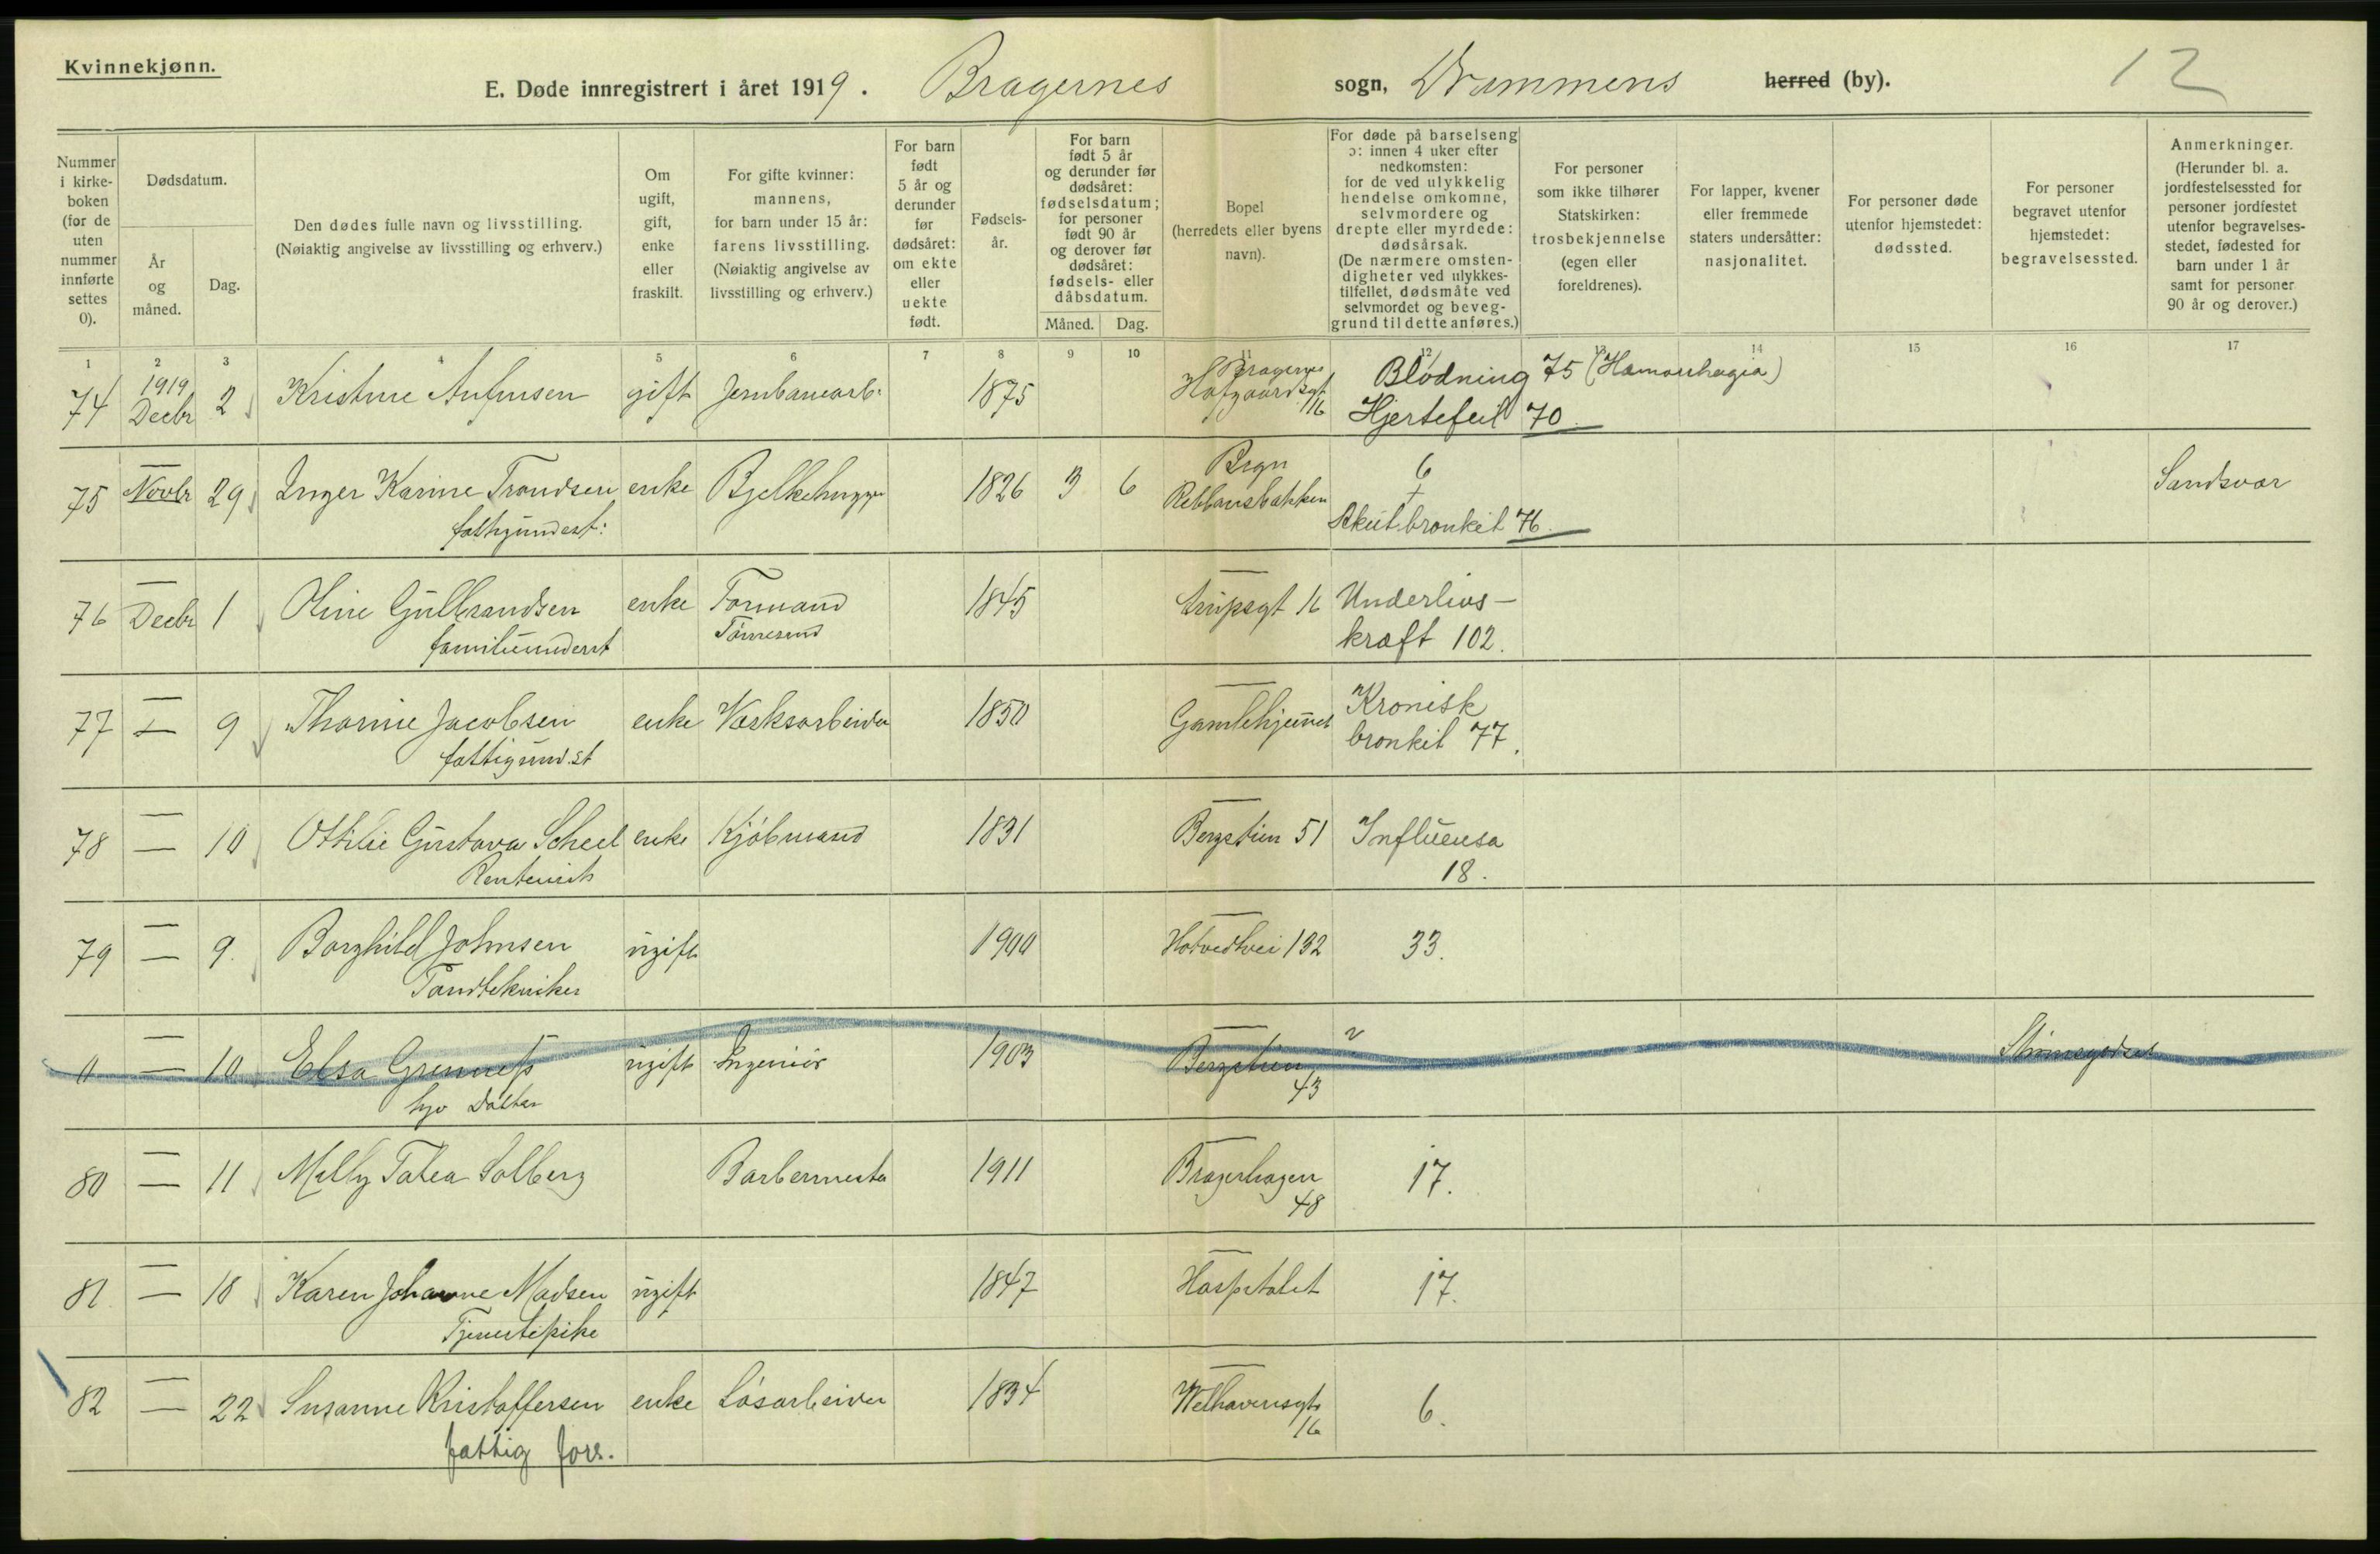 Kvinnekjønn.
E. Døde innregistrert i året 1919. Bragernes sogn, Drammens herred (by).
12
Nummer i kirke-boken (for de uten nummer innførte settes 0).
Dødsdatum.
År og måned.
Dag.
Den dødes fulle navn og livsstilling.
(Nøiaktig angivelse av livsstilling og erhverv.)
Om ugift, gift, enke eller fraskilt.
For gifte kvinner: mannens, for barn under 15 år: farens livsstilling. (Nøiaktig angivelse av livsstilling og erhverv.)
For barn født 5 år og derunder før dødsåret: om ekte eller uekte født.
Fødsels-år.
For barn født 5 år og derunder før dødsåret: fødselsdatum; for personer født 90 år og derover før dødsåret: fødsels- eller dåbsdatum.
Måned.
Dag.
Bopel (herredets eller byens navn).
For døde på barselseng ɔ: innen 4 uker efter nedkomsten: for de ved ulykkelig hendelse omkomne, selvmordere og drepte eller myrdede: dødsårsak. (De nærmere omsten-digheter ved ulykkes-tilfellet, dødsmåte ved selvmordet og beveg-grund til dette anføres.)
For personer som ikke tilhører Statskirken: trosbekjennelse (egen eller foreldrenes).
For lapper, kvener eller fremmede staters undersåtter: nasjonalitet.
For personer døde utenfor hjemstedet: dødssted.
For personer begravet utenfor hjemstedet: begravelsessted.
Anmerkninger. (Herunder bl. a. jordfestelsessted for personer jordfestet utenfor begravelses-stedet, fødested for barn under 1 år samt for personer 90 år og derover.)
1 2 3 4 5 6 7 8 9 10 11 12 13 14 15 16 17
74 1919 Decbr 2 Kristine gift Jernbanearb: 1875 Bragernes 116 Blødning 75 (Hæmorrhagia)
Hjertefeil 70
75 Novbr 29 Inger Karine Trondsen enke Bjelkehugger 1826 3 6 Brgn 6 Sandsvær
Akut bronkit 76
76 — Decbr 1 Oline Gulbrandsen enke Formand 1845 — 16 Underlivs-
familieunderst kræft 102.
77 — 9 Thorine Jacobsen enke Værksarbeider 1850 — Gamlehjemmet Kronisk
fattigund.st bronkit 77.
78 — 10 Ottilie Gustava Scheel enke Kjøbmand 1831 — Bergstien 51 Influensa
18.
79 — 9. Borghild Johnsen ugift 1900 — Hotvedtvei 132 33.
Tandtekniker
0 — 10 Elsa ugift Ingeniør 1903 — Bergstien 43 Strømsgodset
hjv Datter
80 — 11 Melly Solberg Barbermester 1911 — Bragerhagen 48 17.
81 — 18 Karen Johanne Madsen ugift 1847 — Hospitalet 17.
Tjenestepike
82 — 22 Susanne Kristoffersen enke Løsarbeider 1834 — Welhavensgt 16 6.
fattig fors.